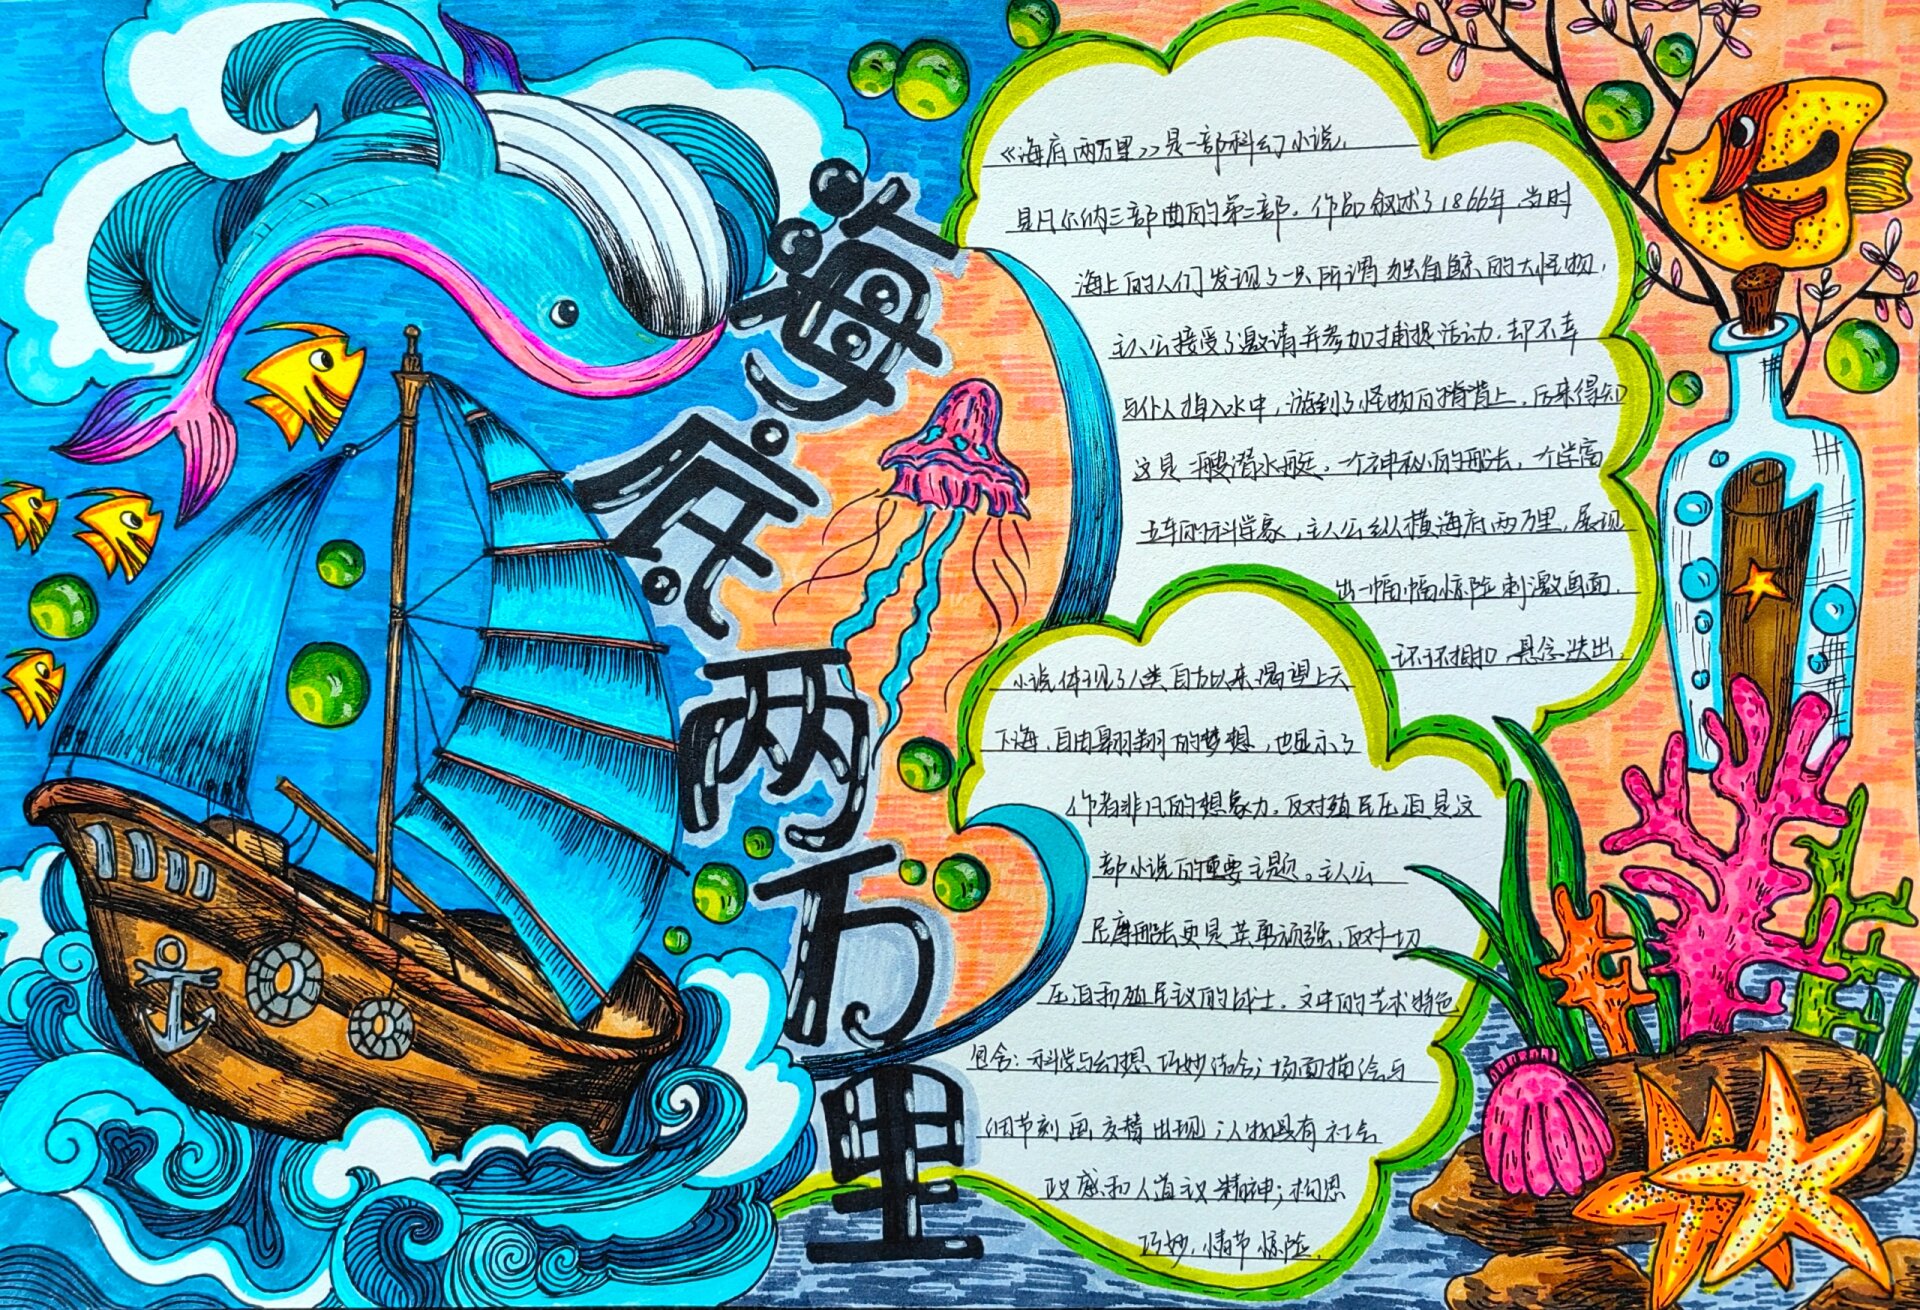 海底两万里
《海底两万里》是一部科幻小说，
是凡尔纳三部曲的第二部。作品叙述了1866年当时
海上的人们发现了一只所谓独角鲸的大怪物，
主人公接受了邀请并参加捕捉活动，却不幸
与仆人掉入水中，游到了怪物的脊背上，后来得知
这是一艘潜水艇，一个神秘的船长，一个学富
五车的科学家，主人公纵横海底两万里，展现
出一幅幅惊险刺激画面，
环环相扣，悬念迭出，
小说体现了人类自古以来渴望上天
下海、自由翱翔的梦想，也显示了
作者非凡的想象力。反对殖民压迫是这
部小说的重要主题。主人公
尼摩船长更是英勇顽强，反对一切
压迫和殖民议的战士。文中的艺术特色
包含：科学与幻想巧妙结合；场面描绘与
细节刻画交替出现；人物具有社会
议感和人道主议精神；构思
巧妙，情节惊险。